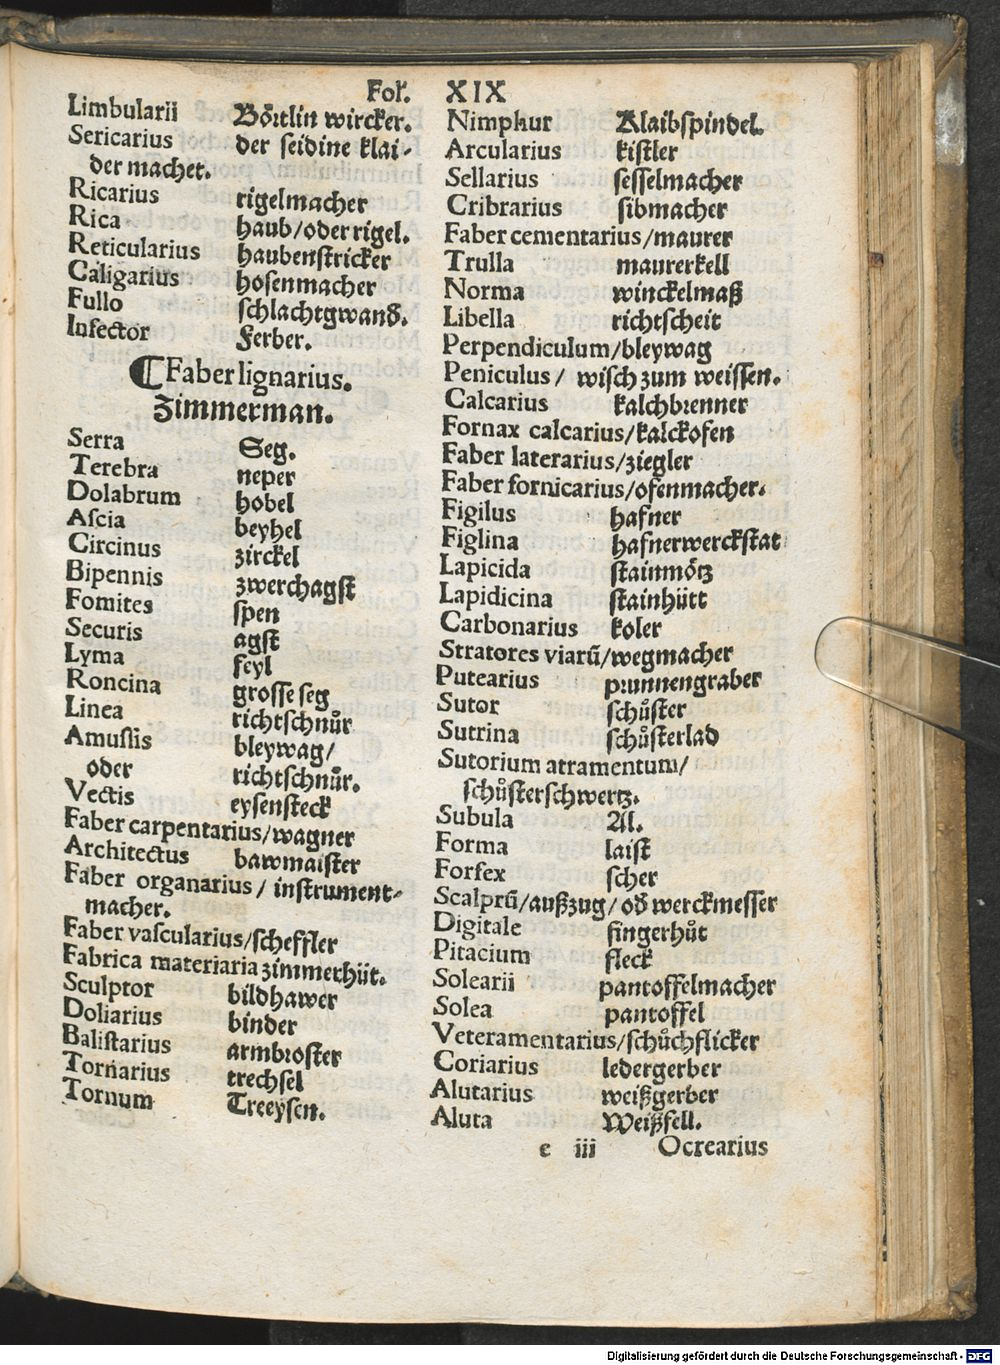 Fol. XIX
Limbularii Börtlin wircker.
Sericarius der seidine klai-
der machet.
Ricarius rigelmacher
Rica haub/oder rigel.
Reticularius haubenstricker
Caligarius hosenmacher
Fullo schlachtgwand.
Infector Ferber.
¶Faber lignarius.
Zimmerman.
Serra Seg.
Terebra neper
Dolabrum hobel
Ascia beyhel
Circinus zirckel
Bipennis zwerchagst
Fomites spen
Securis agst
Lyma feyl
Roncina grosse seg
Linea richtschnůr
Amussis bleywag/
oder richtschnůr.
Vectis eysensteck
Faber carpentarius/wagner
Architectus bawmaister
Faber organarius/ instrument-
macher.
Faber vascularius/scheffler
Fabrica materiaria zimmerhüt.
Sculptor bildhawer
Doliarius binder
Balistarius armbroster
Tornarius trechsel
Tornum Treeysen.
Nimphur Klaibspindel.
Arcularius kistler
Sellarius sesselmacher
Cribrarius sibmacher
Faber cementarius/maurer
Trulla maurerkell
Norma winckelmaß
Libella richtscheit
Perpendiculum/bleywag
Peniculus/ wisch zum weissen.
Calcarius kalchbrenner
Fornax calcarius/kalckofen
Faber laterarius/ziegler
Faber fornicarius/ofenmacher.
Figilus hafner
Figlina hafnerwerckstat
Lapicida stainmötz
Lapidicina stainhütt
Carbonarius koler
Stratores viarū/wegmacher
Putearius prunnengraber
Sutor schůster
Sutrina schůsterlad
Sutorium atramentum/
schůsterschwertz.
Subula Äl.
Forma laist
Forfex scher
Scalprū/außzug/od werckmesser
Digitale fingerhůt
Pitacium fleck
Solearii pantoffelmacher
Solea pantoffel
Veteramentarius/schůchflicker
Coriarius ledergerber
Alutarius weißgerber
Aluta Weißfell.
e iii Ocrearius
Digitalisierung gefördert durch die Deutsche Forschungsgemeinschaft - DFG